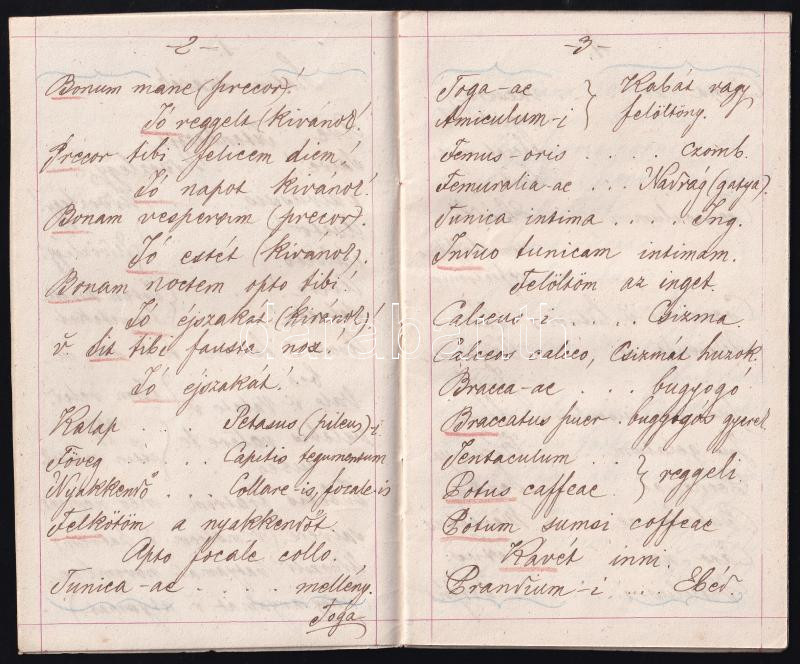 -2-
Bonum mane (precor)!
Jó reggelt (kivánok)!
Precor tibi felicem diem!
Jó napot kivánok!
Bonam vesperam (precor).
Jó estét (kivánok).
Bonam noctem opto tibi!
Jó éjszakát (kivánok)!
v. Sit tibi fausta nox!
Jó éjszakát!
Kalap . . . Petasus (pileus)-i
Föveg . . . Capitis tegumentum
Nyakkendő . . . Collare-is, focale-is
Felkötöm a nyakkendőt.
Apto focale collo.
Tunica-ae . . . . . mellény.
Toga
-3-
Toga-ae } Kabát vagy
Amiculum-i } felöltöny.
Femus-oris . . . . czomb.
Femuralia-ae . . . Nadrág (gatya).
Tunica intima . . . . Ing.
Induo tunicam intimam.
Felöltöm az inget.
Calceus-i . . . . . Csizma.
Calceos calceo, Csizmát huzok.
Bracca-ae . . . bugyogó
Braccatus puer - bugyogós gyerek
Jentaculum . . . } reggeli.
Potus caffeae . }
Potum sumsi coffeae
Kávét inni.
Prandium-i . . . Ebéd.
darabanth